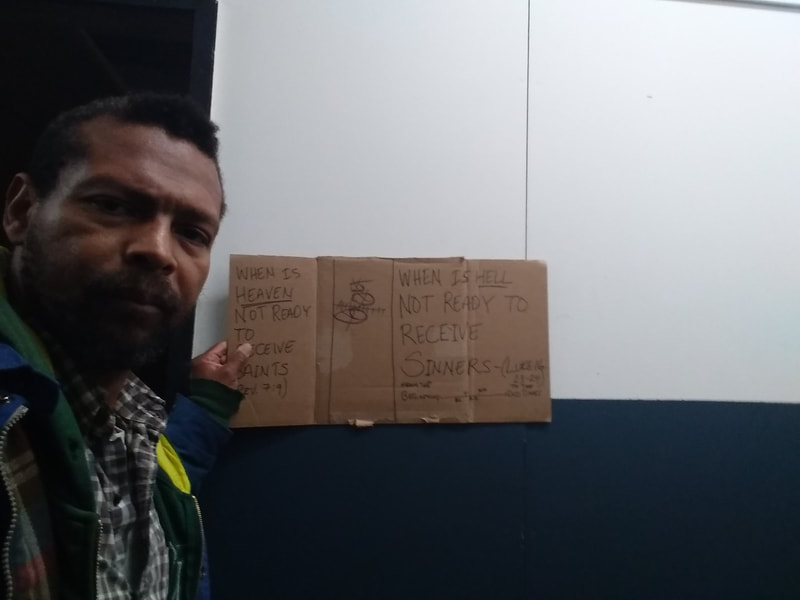 WHEN IS
HEAVEN
NOT READY
TO
RECEIVE
SAINTS
7-9)
WHEN IS HELL
NOT READY TO
RECEIVE
SINNERS-(LUKE 16